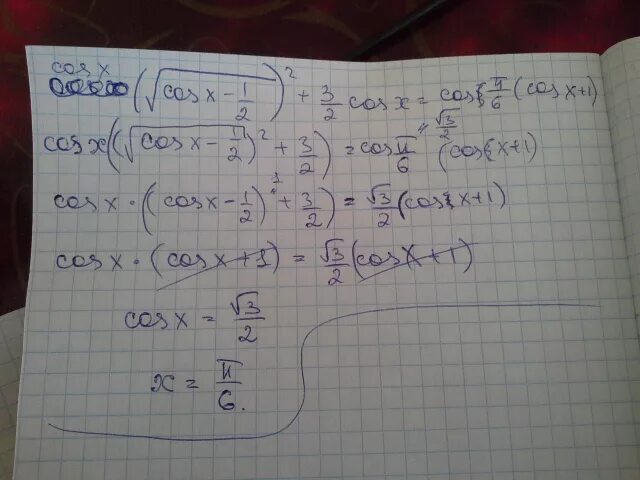 cos x (√(cos x - 1/2))² + 3/2 cos x = cos π/6 (cos x+1)
cos x((√(cos x - 1/2))² + 3/2) = cos π/6 (cos x+1)
" √3/2
cos x · ((cos x - 1/2)¹ + 3/2) = √3/2 (cos x+1)
cos x · (cos x+1) = √3/2 (cos x+1)
cos x = √3/2
x = π/6.